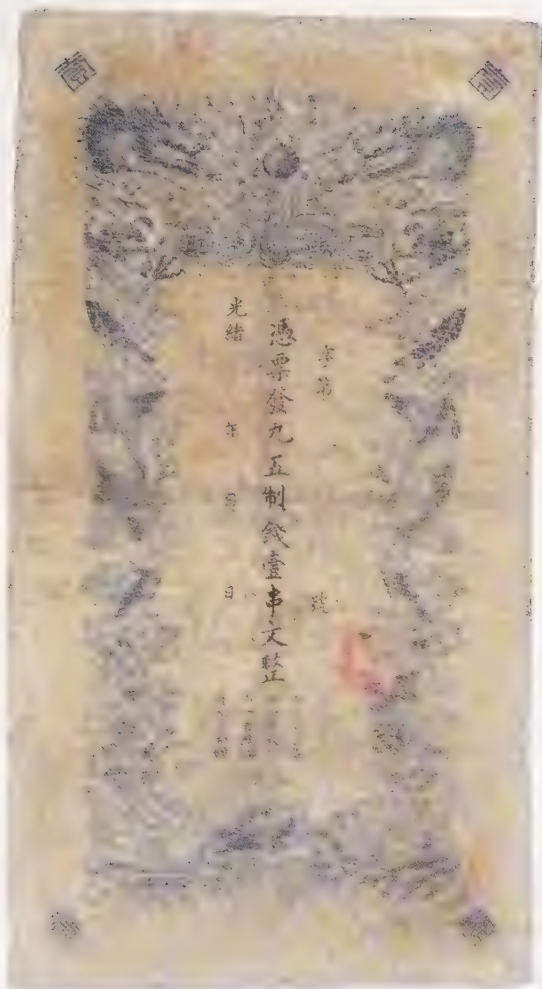 壹
壹
字第
號
憑票發九五制錢壹串文整
光緒
年
月
日